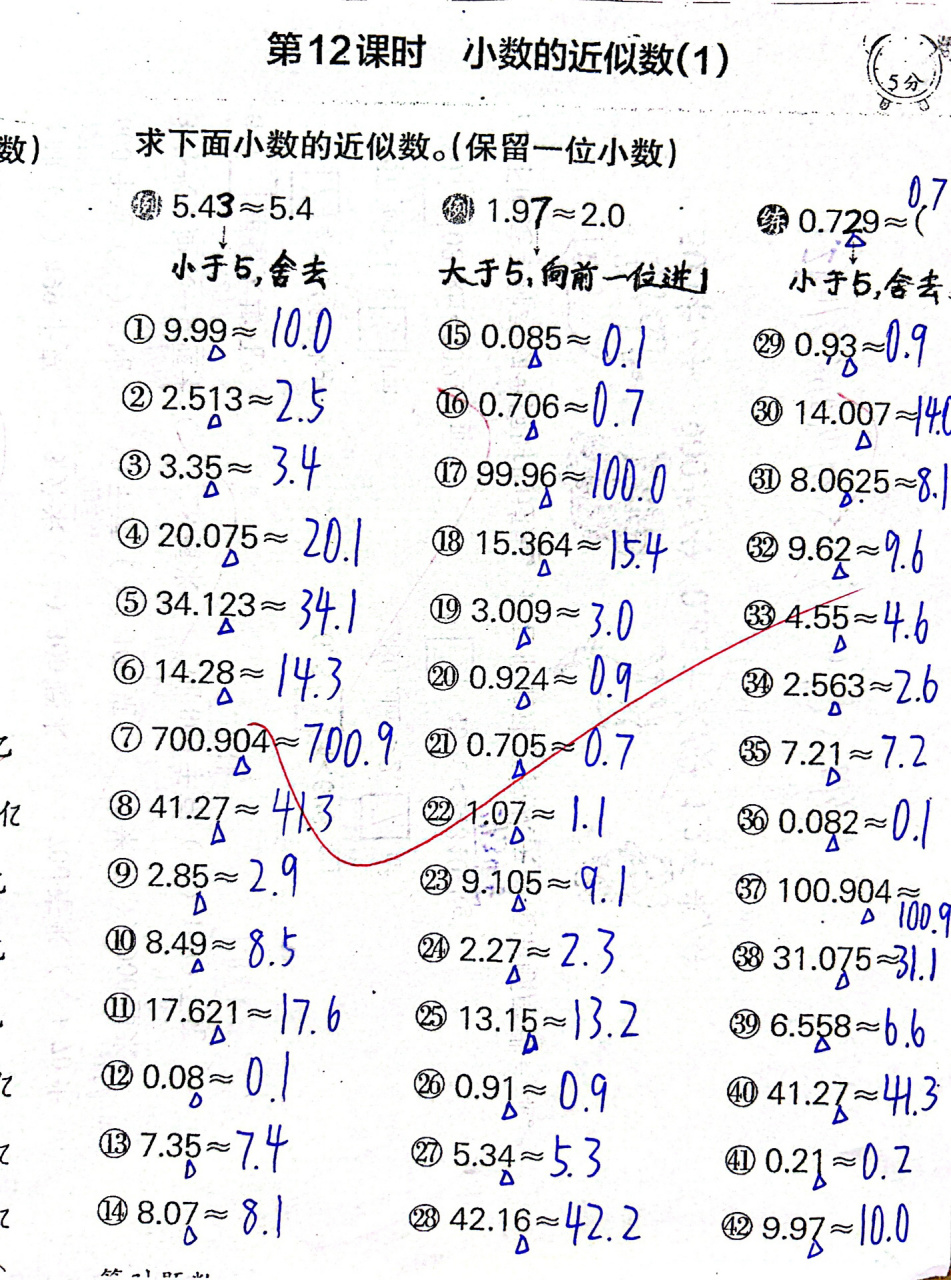 第12课时 小数的近似数(1)
5分
数)
求下面小数的近似数。(保留一位小数)
例 5.43≈5.4
小于5,舍去
例 1.97≈2.0
大于5,向前一位进1
练 0.729≈(0.7
小于5,舍去
① 9.99≈10.0
② 2.513≈2.5
③ 3.35≈3.4
④ 20.075≈20.1
⑤ 34.123≈34.1
⑥ 14.28≈14.3
⑦ 700.904≈700.9
⑧ 41.27≈41.3
⑨ 2.85≈2.9
⑩ 8.49≈8.5
⑪ 17.621≈17.6
⑫ 0.08≈0.1
⑬ 7.35≈7.4
⑭ 8.07≈8.1
⑮ 0.085≈0.1
⑯ 0.706≈0.7
⑰ 99.96≈100.0
⑱ 15.364≈15.4
⑲ 3.009≈3.0
⑳ 0.924≈0.9
㉑ 0.705≈0.7
㉒ 1.07≈1.1
㉓ 9.105≈9.1
㉔ 2.27≈2.3
㉕ 13.15≈13.2
㉖ 0.91≈0.9
㉗ 5.34≈5.3
㉘ 42.16≈42.2
㉙ 0.93≈0.9
㉚ 14.007≈14.0
㉛ 8.0625≈8.1
㉜ 9.62≈9.6
㉝ 4.55≈4.6
㉞ 2.563≈2.6
㉟ 7.21≈7.2
㊱ 0.082≈0.1
㊲ 100.904≈100.9
㊳ 31.075≈31.1
㊴ 6.558≈6.6
㊵ 41.27≈41.3
㊶ 0.21≈0.2
㊷ 9.97≈10.0
亿